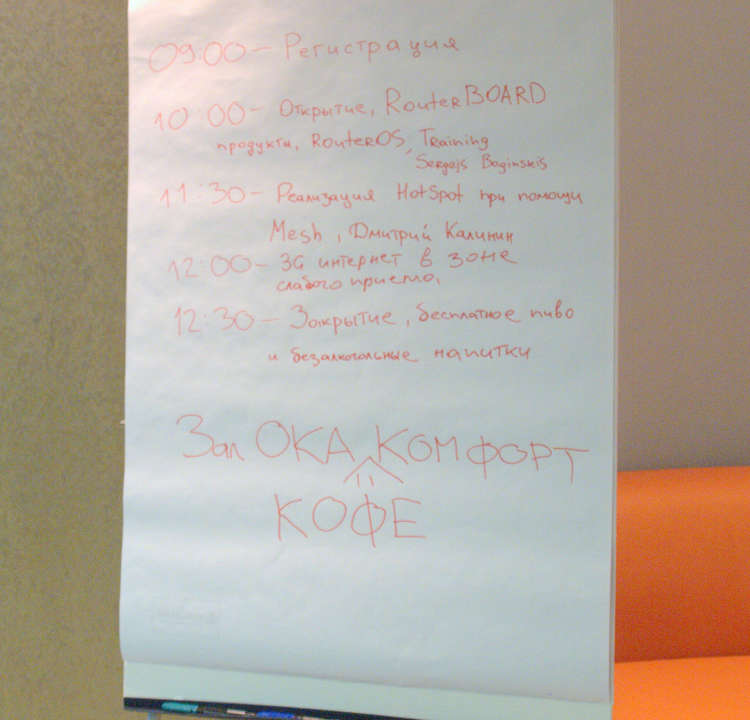 09:00 – Регистрация
10:00 – Открытие, RouterBOARD
продукти, RouterOS, Training
Sergejs Boginskis
11:30 – Реализация HotSpot при помощи
Mesh, Дмитрий Калинин
12:00 – 3G интернет в зоне
слабого приема,
12:30 – Закрытие, бесплатное пиво
и безалкогольные напитки
Зал ОКА КОМФОРТ
КОФЕ